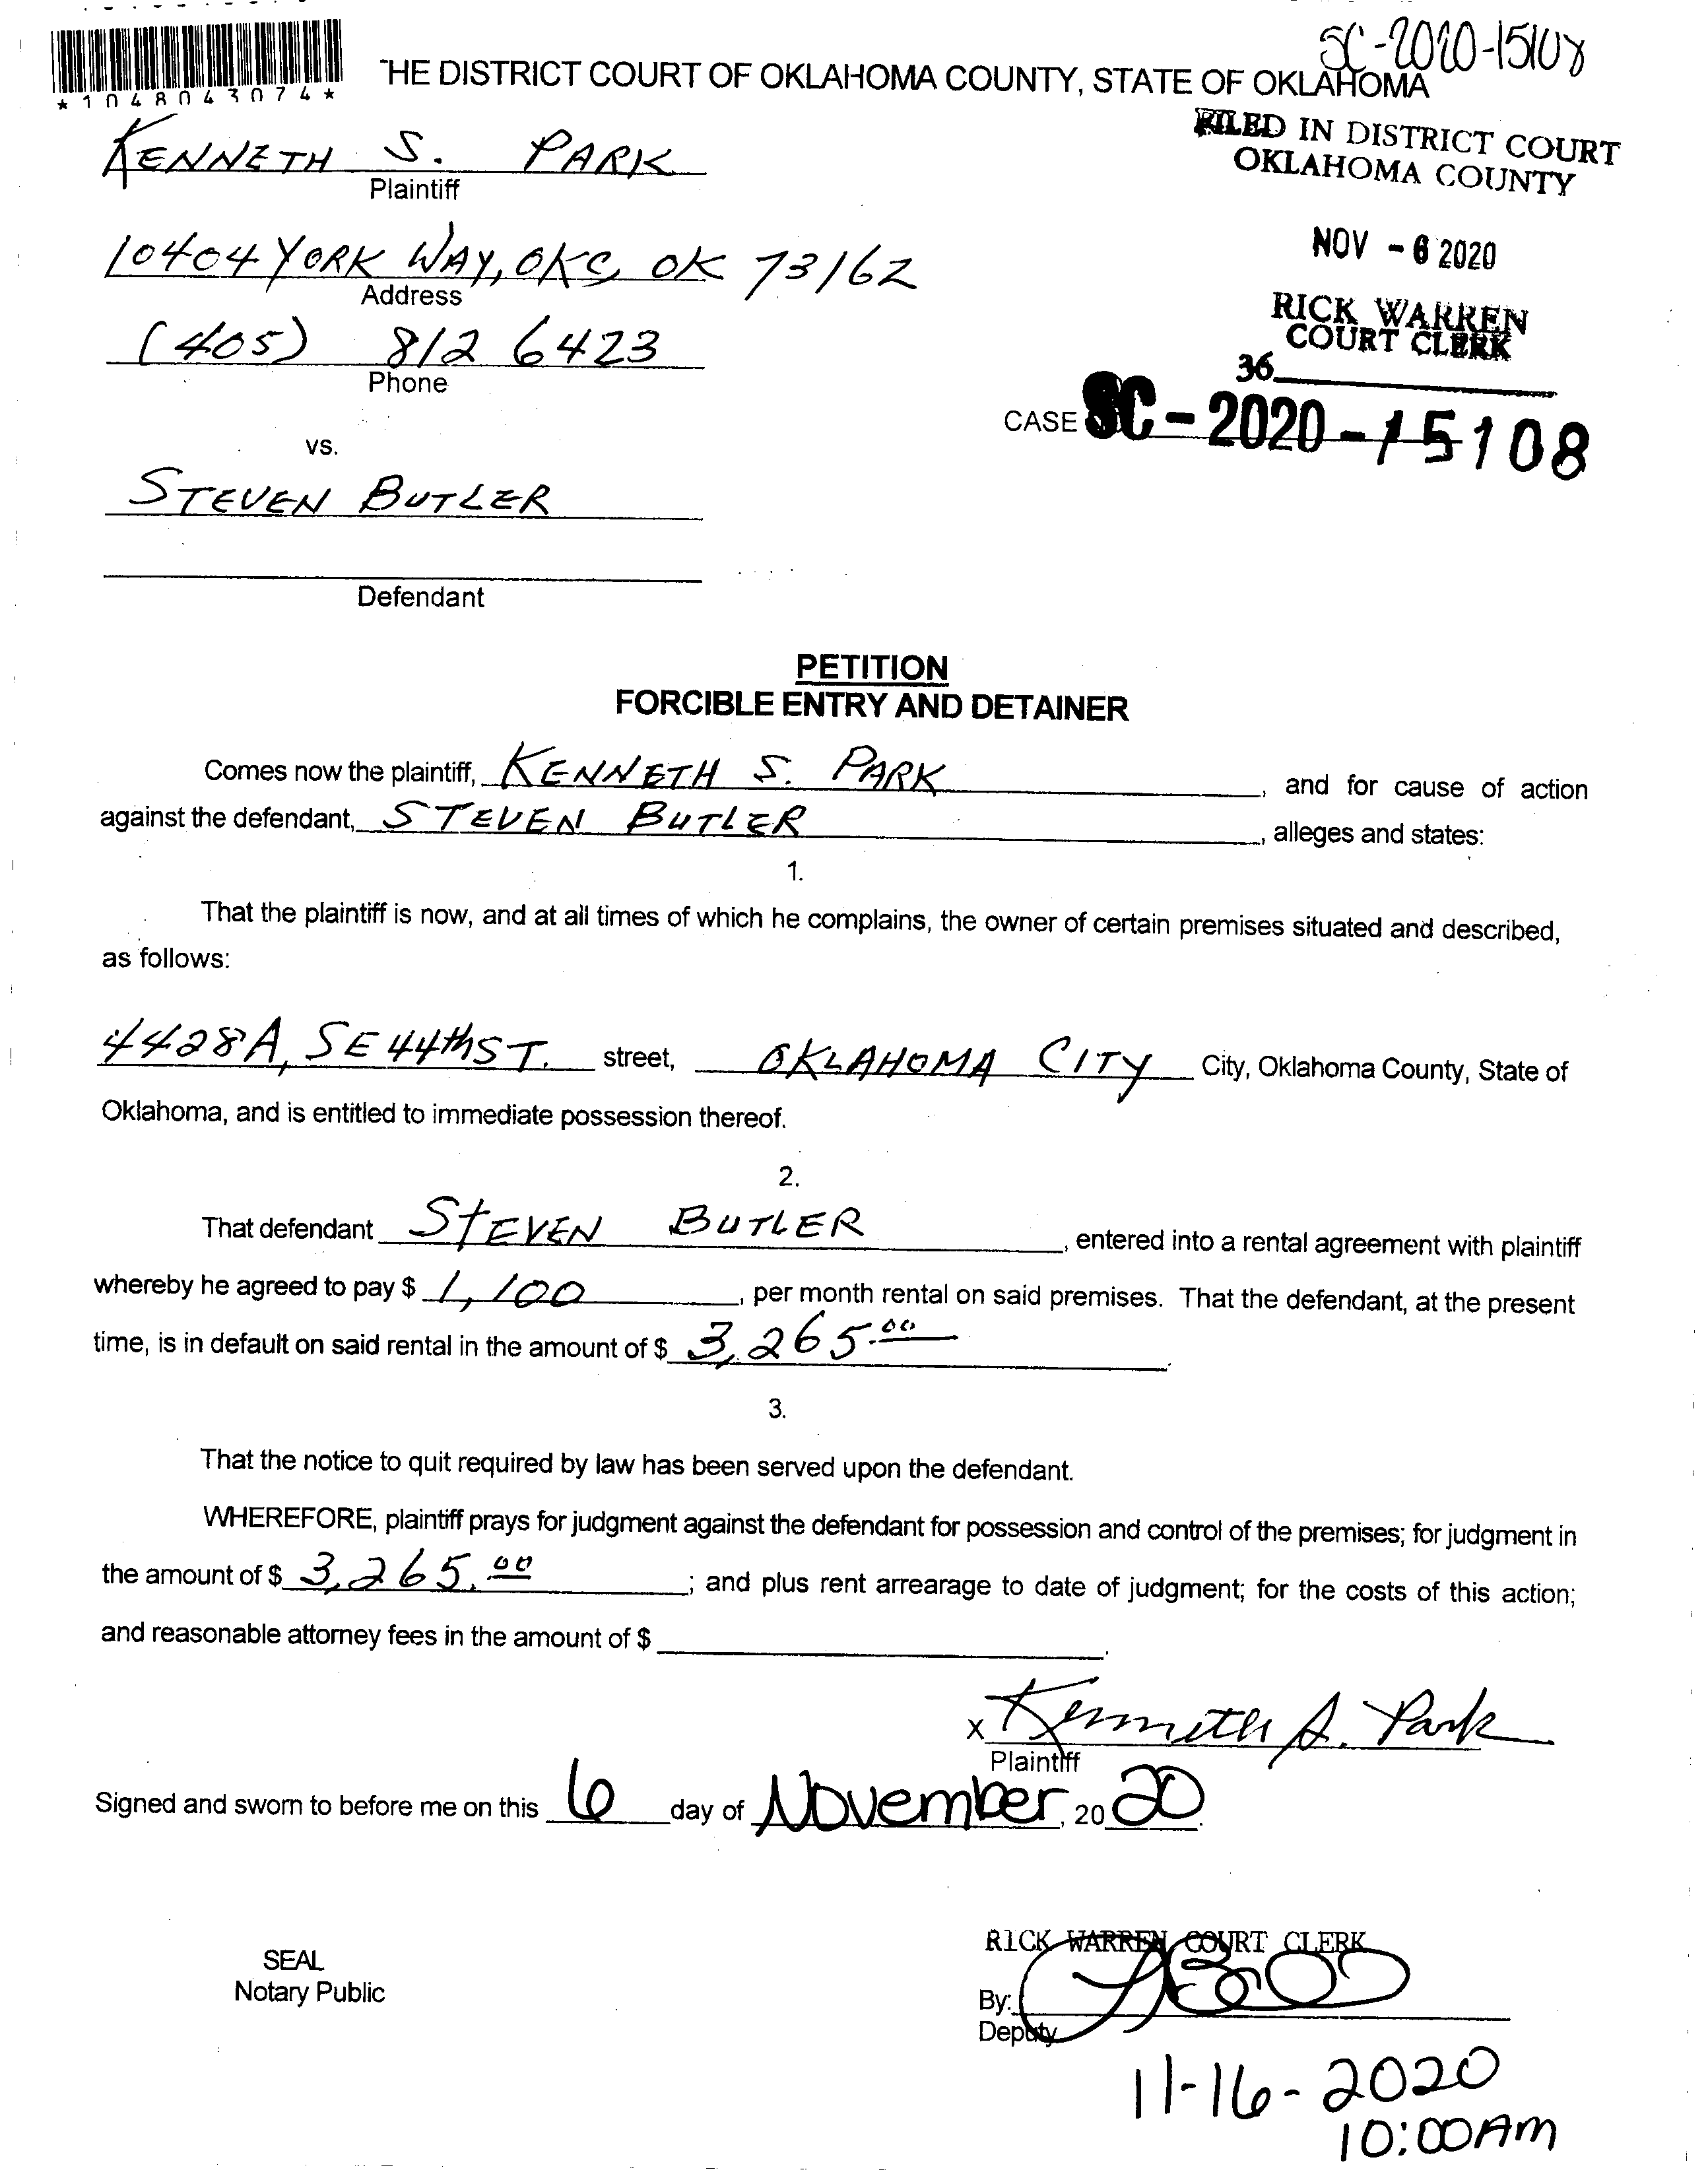 SC-2020-15108
*1048043074*
THE DISTRICT COURT OF OKLAHOMA COUNTY, STATE OF OKLAHOMA
FILED IN DISTRICT COURT
OKLAHOMA COUNTY
KENNETH S. PARK
Plaintiff
10404 YORK WAY, OKC, OK 73162
Address
NOV - 6 2020
(405) 812 6423
Phone
RICK WARREN
COURT CLERK
36
CASE SC-2020-15108
vs.
STEVEN BUTLER
Defendant
PETITION
FORCIBLE ENTRY AND DETAINER
Comes now the plaintiff, KENNETH S. PARK, and for cause of action
against the defendant, STEVEN BUTLER, alleges and states:
1.
That the plaintiff is now, and at all times of which he complains, the owner of certain premises situated and described,
as follows:
4428A, SE 44th ST. street, OKLAHOMA CITY City, Oklahoma County, State of
Oklahoma, and is entitled to immediate possession thereof.
2.
That defendant STEVEN BUTLER, entered into a rental agreement with plaintiff
whereby he agreed to pay $ 1,100, per month rental on said premises. That the defendant, at the present
time, is in default on said rental in the amount of $ 3,265.00.
3.
That the notice to quit required by law has been served upon the defendant.
WHEREFORE, plaintiff prays for judgment against the defendant for possession and control of the premises; for judgment in
the amount of $ 3,265.00; and plus rent arrearage to date of judgment; for the costs of this action;
and reasonable attorney fees in the amount of $ .
X Kenneth S. Park
Plaintiff
Signed and sworn to before me on this 6 day of November, 20 20.
RICK WARREN COURT CLERK
SEAL
Notary Public
By:
Deputy
11-16-2020
10:00AM